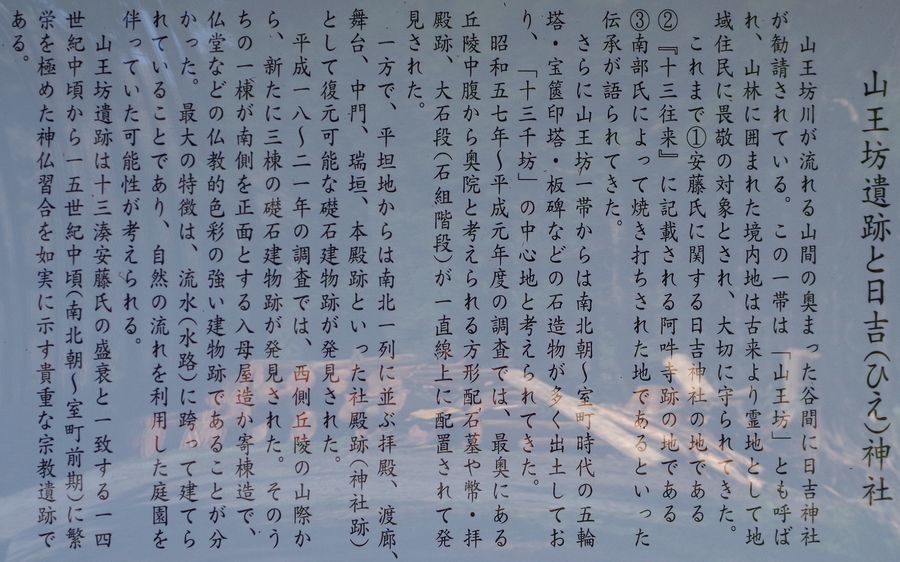 山王坊遺跡と日吉(ひえ)神社
山王坊川が流れる山間の奥まった谷間に日吉神社
が勧請されている。この一帯は「山王坊」とも呼ば
れ、山林に囲まれた境内地は古来より霊地として地
域住民に畏敬の対象とされ、大切に守られてきた。
これまで①安藤氏に関する日吉神社の地である
②『十三往来』に記載される阿吽寺跡の地である
③南部氏によって焼き打ちされた地であるといった
伝承が語られてきた。
さらに山王坊一帯からは南北朝～室町時代の五輪
塔・宝篋印塔・板碑などの石造物が多く出土してお
り、「十三千坊」の中心地と考えられてきた。
昭和五七年～平成元年度の調査では、最奥にある
丘陵中腹から奥院と考えられる方形配石墓や幣・拝
殿跡、大石段(石組階段)が一直線上に配置されて発
見された。
一方で、平坦地からは南北一列に並ぶ拝殿、渡廊、
舞台、中門、瑞垣、本殿跡といった社殿跡(神社跡)
として復元可能な礎石建物跡が発見された。
平成一八～二一年の調査では、西側丘陵の山際か
ら、新たに三棟の礎石建物跡が発見された。そのう
ちの一棟が南側を正面とする入母屋造か寄棟造で、
仏堂などの仏教的色彩の強い建物跡であることが分
かった。最大の特徴は、流水(水路)に跨って建てら
れていることであり、自然の流れを利用した庭園を
伴っていた可能性が考えられる。
山王坊遺跡は十三湊安藤氏の盛衰と一致する一四
世紀中頃から一五世紀中頃(南北朝～室町前期)に繁
栄を極めた神仏習合を如実に示す貴重な宗教遺跡で
ある。